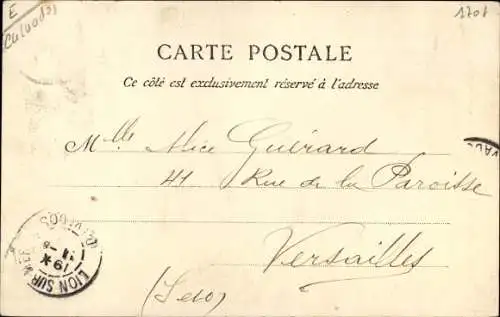 E
Calvados
1708
CARTE POSTALE
Ce côté est exclusivement réservé à l'adresse
Mlle Alice Guérard
41 Rue de la Paroisse
Versailles
(Seto)
LION SUR MER
CALVADOS